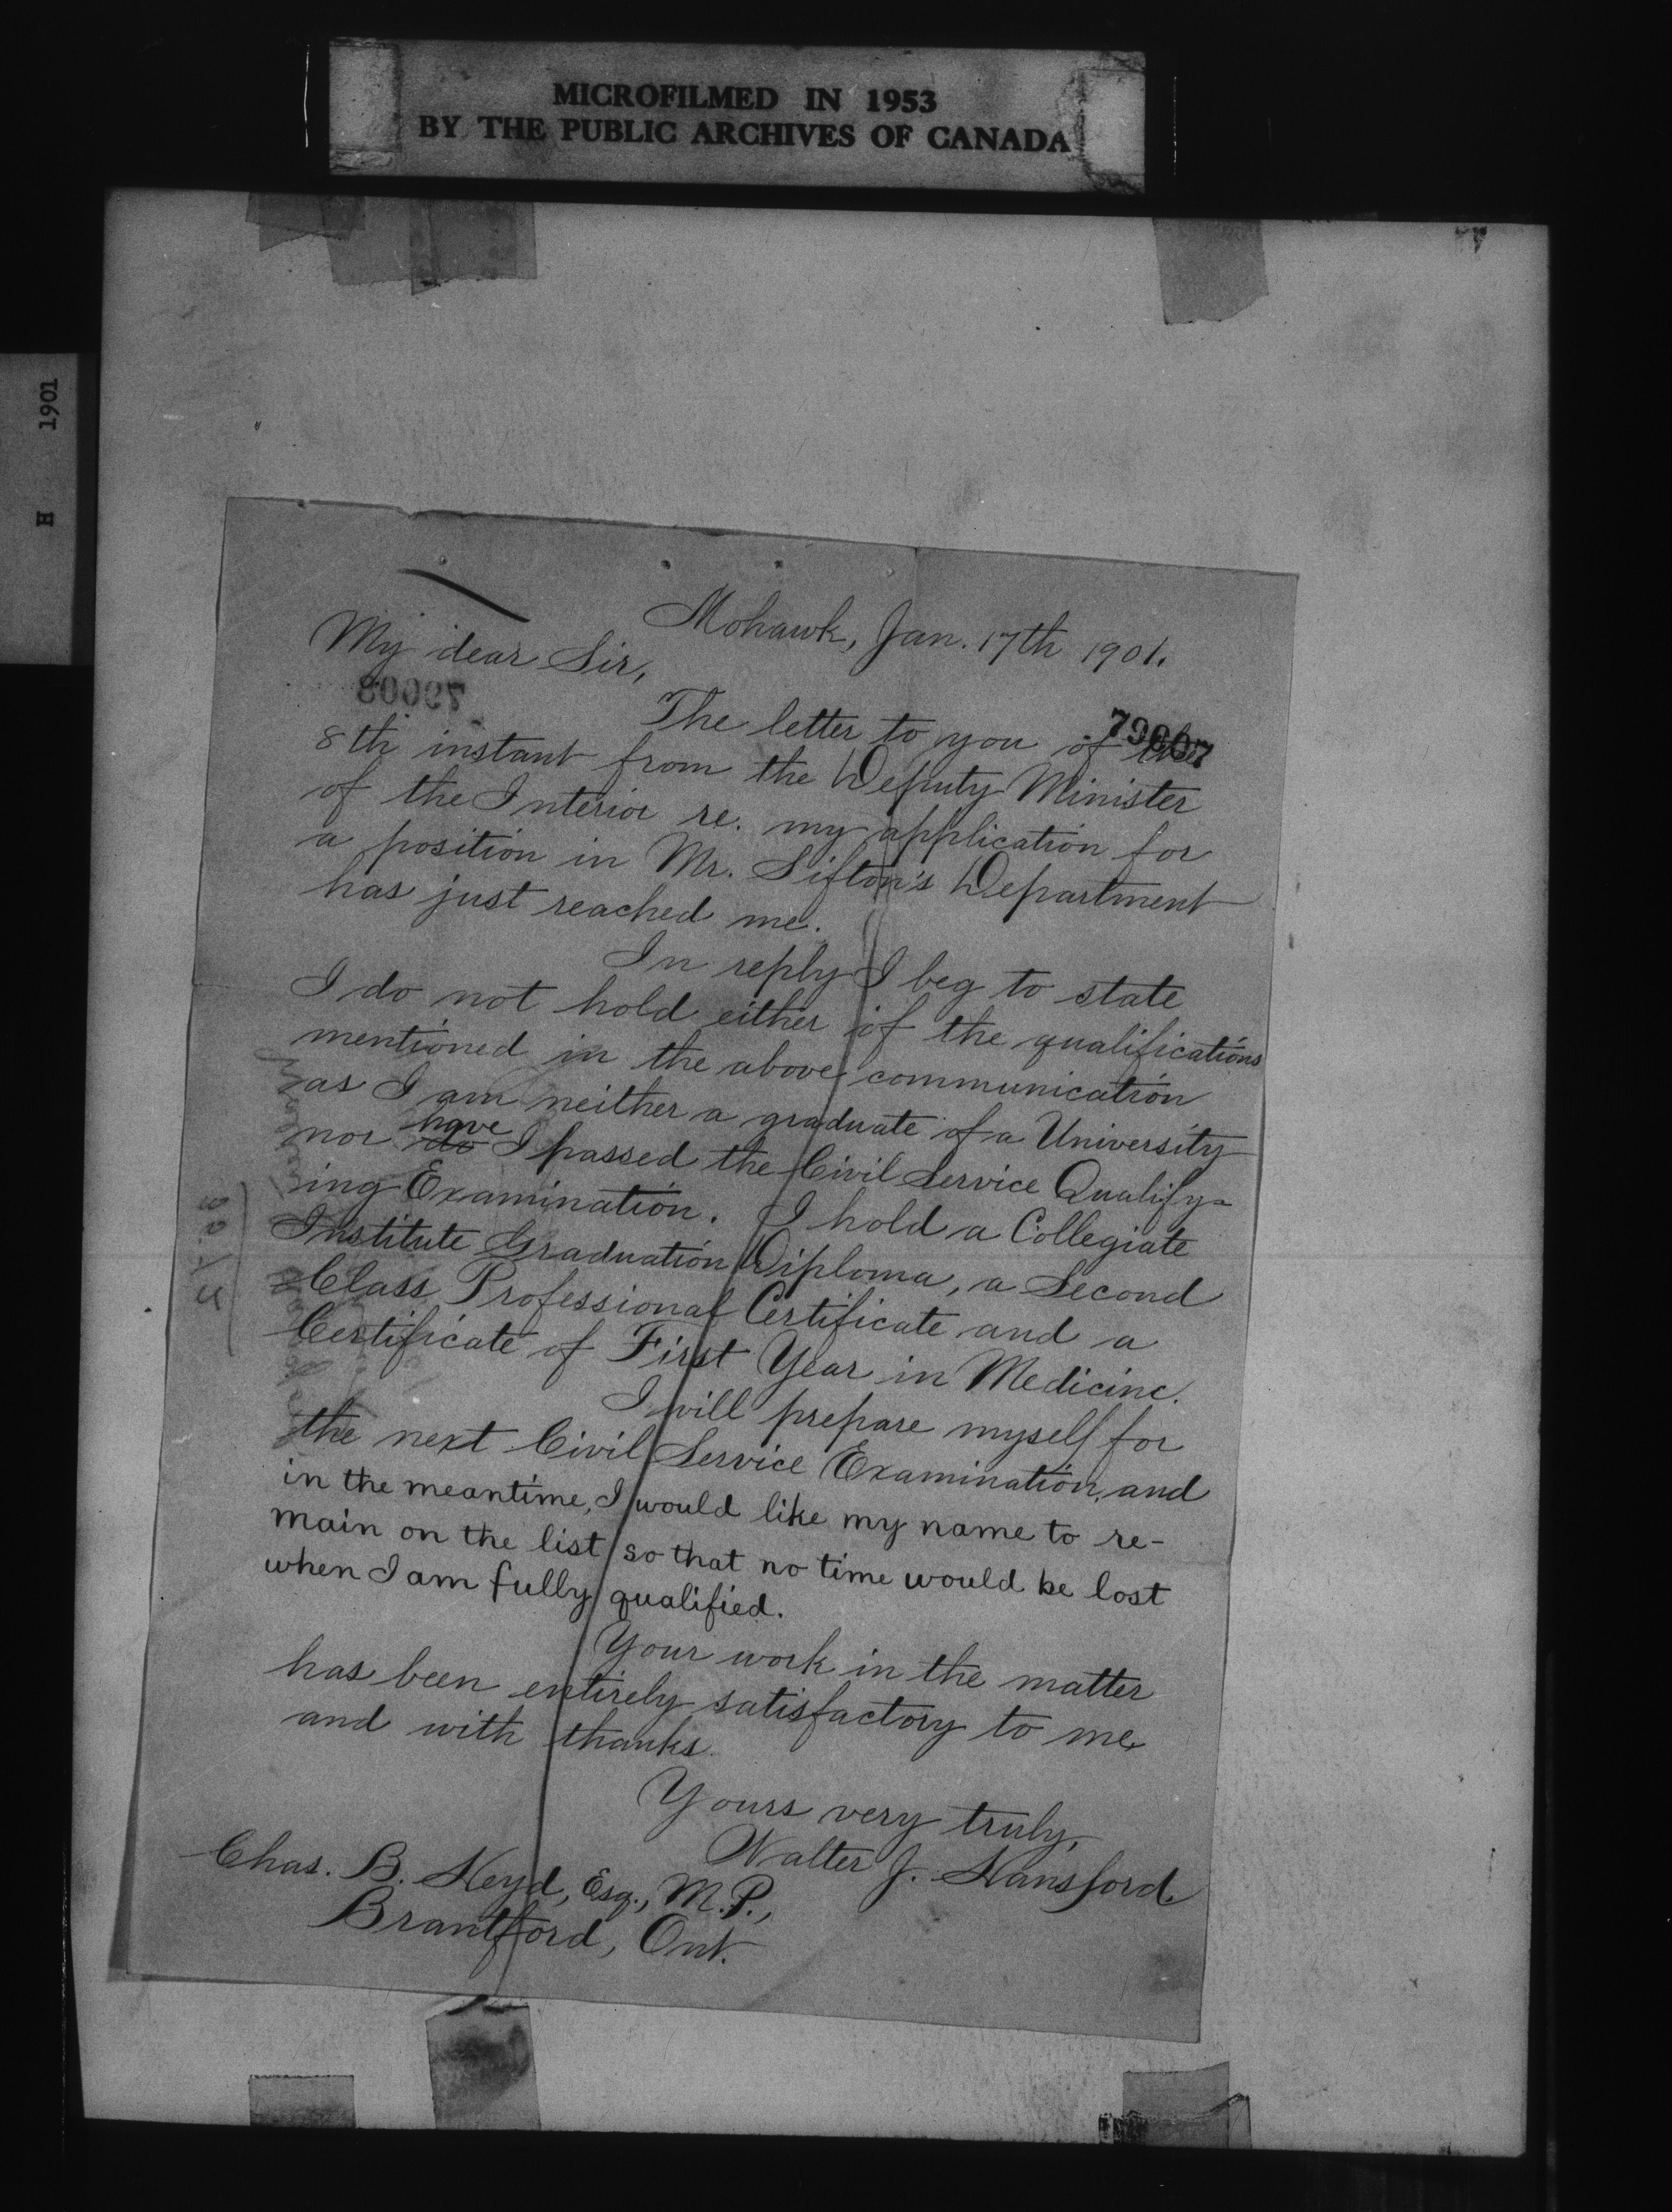 MICROFILMED IN 1953
BY THE PUBLIC ARCHIVES OF CANADA
H 1901
Mohawk, Jan. 17th 1901.
My dear Sir,
79007
The letter to you of the
8th instant from the Deputy Minister
of the Interior re. my application for
a position in Mr. Sifton's Department
has just reached me.
In reply I beg to state
I do not hold either of the qualifications
mentioned in the above communication
as I am neither a graduate of a University
nor do have I passed the Civil Service Qualify-
ing Examination. I hold a Collegiate
Institute Graduation Diploma, a Second
Class Professional Certificate and a
Certificate of First Year in Medicine.
I will prepare myself for
the next Civil Service Examination, and
in the meantime, I would like my name to re-
main on the list so that no time would be lost
when I am fully qualified.
Your work in the matter
has been entirely satisfactory to me,
and with thanks.
Yours very truly,
Walter J. Hansford.
Chas. B. Heyd, Esq., M.P.,
Brantford, Ont.